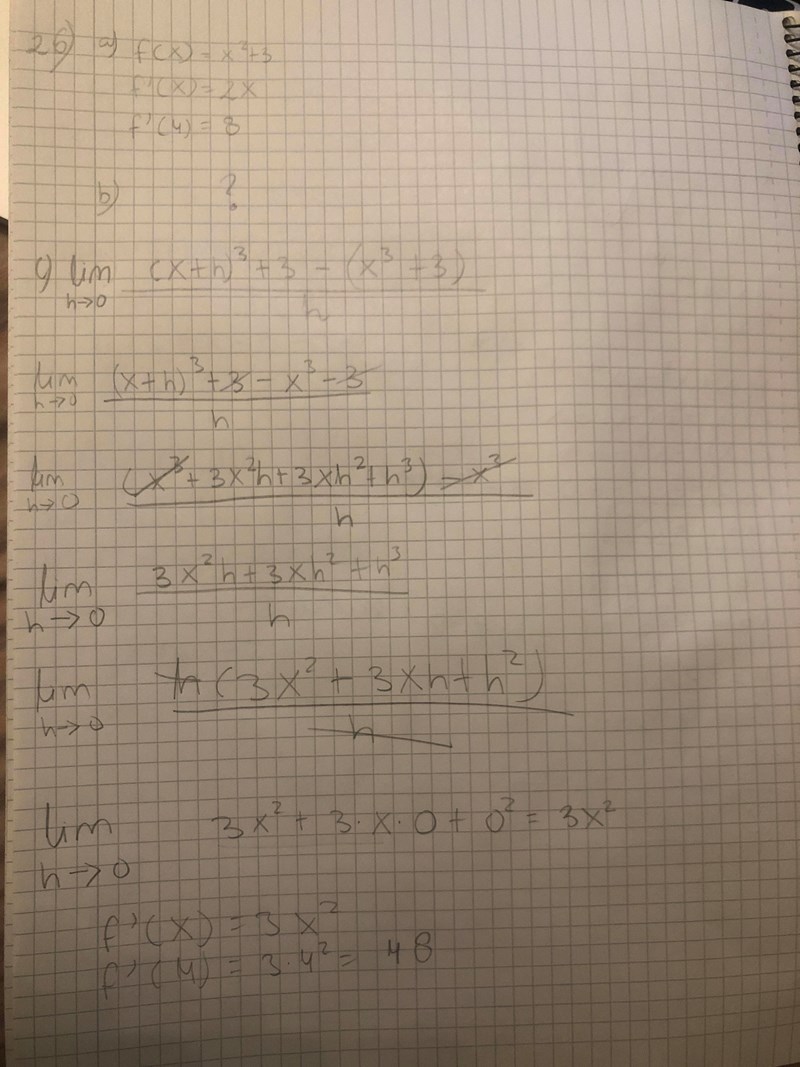 26) a) f(x) = x²+3
f'(x) = 2x
f'(4) = 8
b) ?
c) lim h→0 (x+h)³+3-(x³+3) / h
lim h→0 (x+h)³+3-x³-3 / h
lim h→0 (x³+3x²h+3xh²+h³)-x³ / h
lim h→0 3x²h+3xh²+h³ / h
lim h→0 h(3x²+3xh+h²) / h
lim h→0 3x²+3·x·0+0²=3x²
f'(x) = 3x²
f'(4) = 3·4² = 48